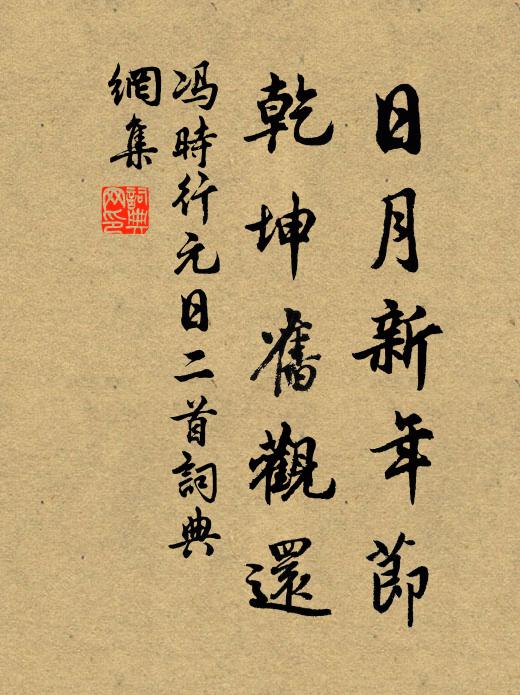 日月新年節
乾坤舊觀還
冯時行元日二首詞典
網集
詞典
网印